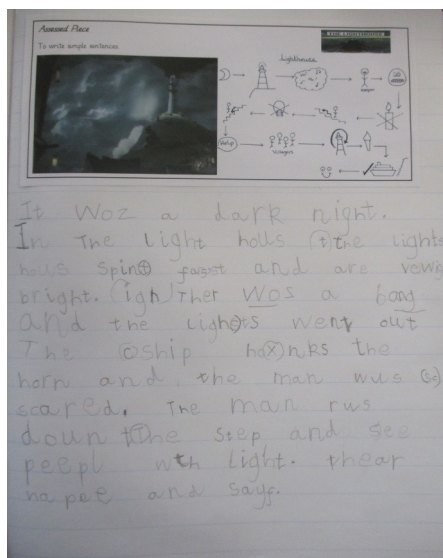 Assessed Piece
To write simple sentences.
THE LIGHTHOUSE
Lighthouse
keeper
villagers
It woz a dark night.
In The Light holls the lights
holls spint fasst and are vewy
bright. igh Ther wos a bang
and the lights went out
The ship honks the
horn and the man wus (sc)
scared. The man rws
doun the step and see
peepl wth Light. thear
hapee and sayf.